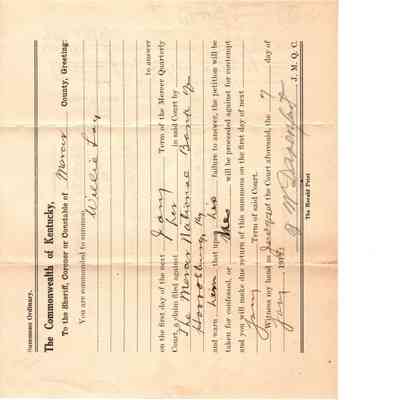 Summons Ordinary.
The Commonwealth of Kentucky,
To the Sheriff, Coroner or Constable of Mercer County, Greeting:
You are commanded to summon Willie Fox
to answer
on the first day of the next Jany Term of the Mercer Quarterly
Court, a claim filed against her in said Court by
The Mercer National Bank of
Harrodsburg, Ky
and warn him that upon his failure to answer, the petition will be
taken for confessed, or he will be proceeded against for contempt
and you will make due return of this summons on the first day of next
Jany Term of said Court.
Witness my hand as Judge of the Court aforesaid, the 7 day of
Jany 191
J. M. Q. C.
The Herald Print